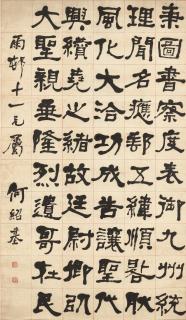 秉圖書察度表御九州統
理聞名應郵五緯順晷
風化大洽功成告讓聖代
興纘堯之緒故廷尉卿
大聖親垂隆烈遺哥在民
雨邨十一兄屬 何紹基